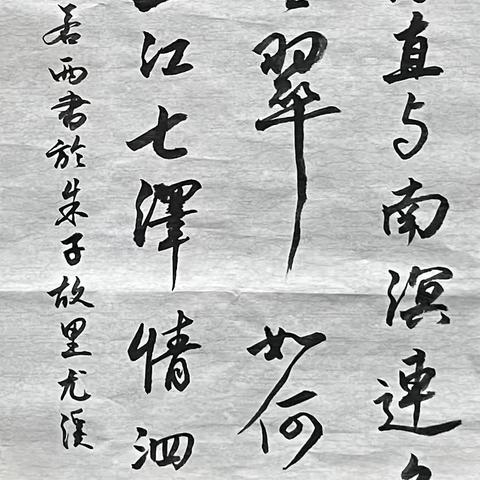 直与南溟連
翠如何
江七澤情洄
若雨書於朱子故里尤溪